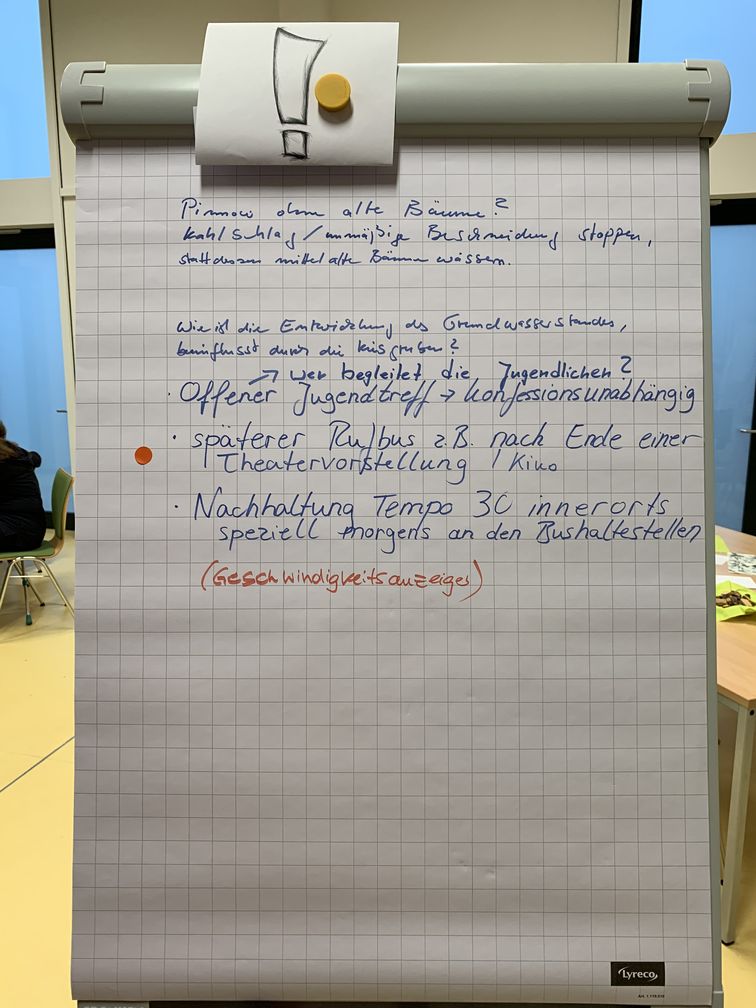 !
Pinnow ohne alte Bäume?
Kahlschlag / unmäßige Beschneidung stoppen,
stattdessen mittelalte Bäume wässern.
Wie ist die Entwicklung des Grundwasserstandes,
beeinflusst durch die Kiesgruben?
→ wer begleitet die Jugendlichen?
· Offener Jugendtreff → konfessionsunabhängig
· späterer Rufbus z.B. nach Ende einer
Theatervorstellung / Kino
· Nachhaltung Tempo 30 innerorts
speziell morgens an den Bushaltestellen
(Geschwindigkeitsanzeiger)
Lyreco